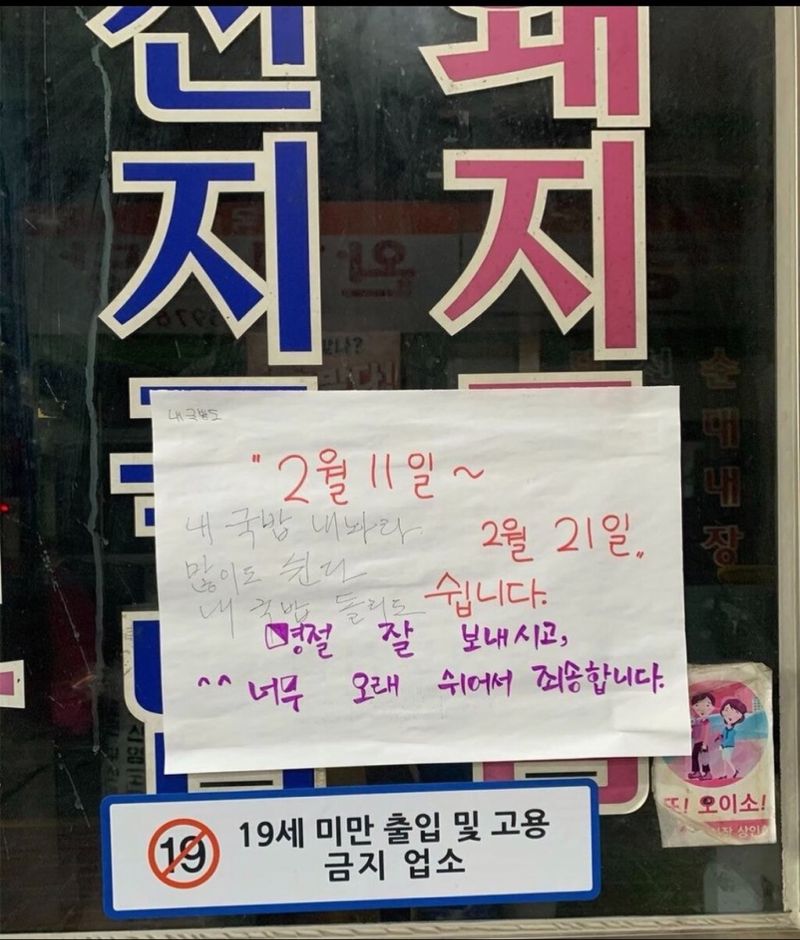 지
지
순대내장
내국밥도
"2월 11일 ~
2월 21일"
쉽니다.
내 국밥 내놔라
많이도 쉰다
내 국밥 돌리도
명절 잘 보내시고,
^^ 너무 오래 쉬어서 죄송합니다.
또! 오이소!
19
19세 미만 출입 및 고용
금지 업소